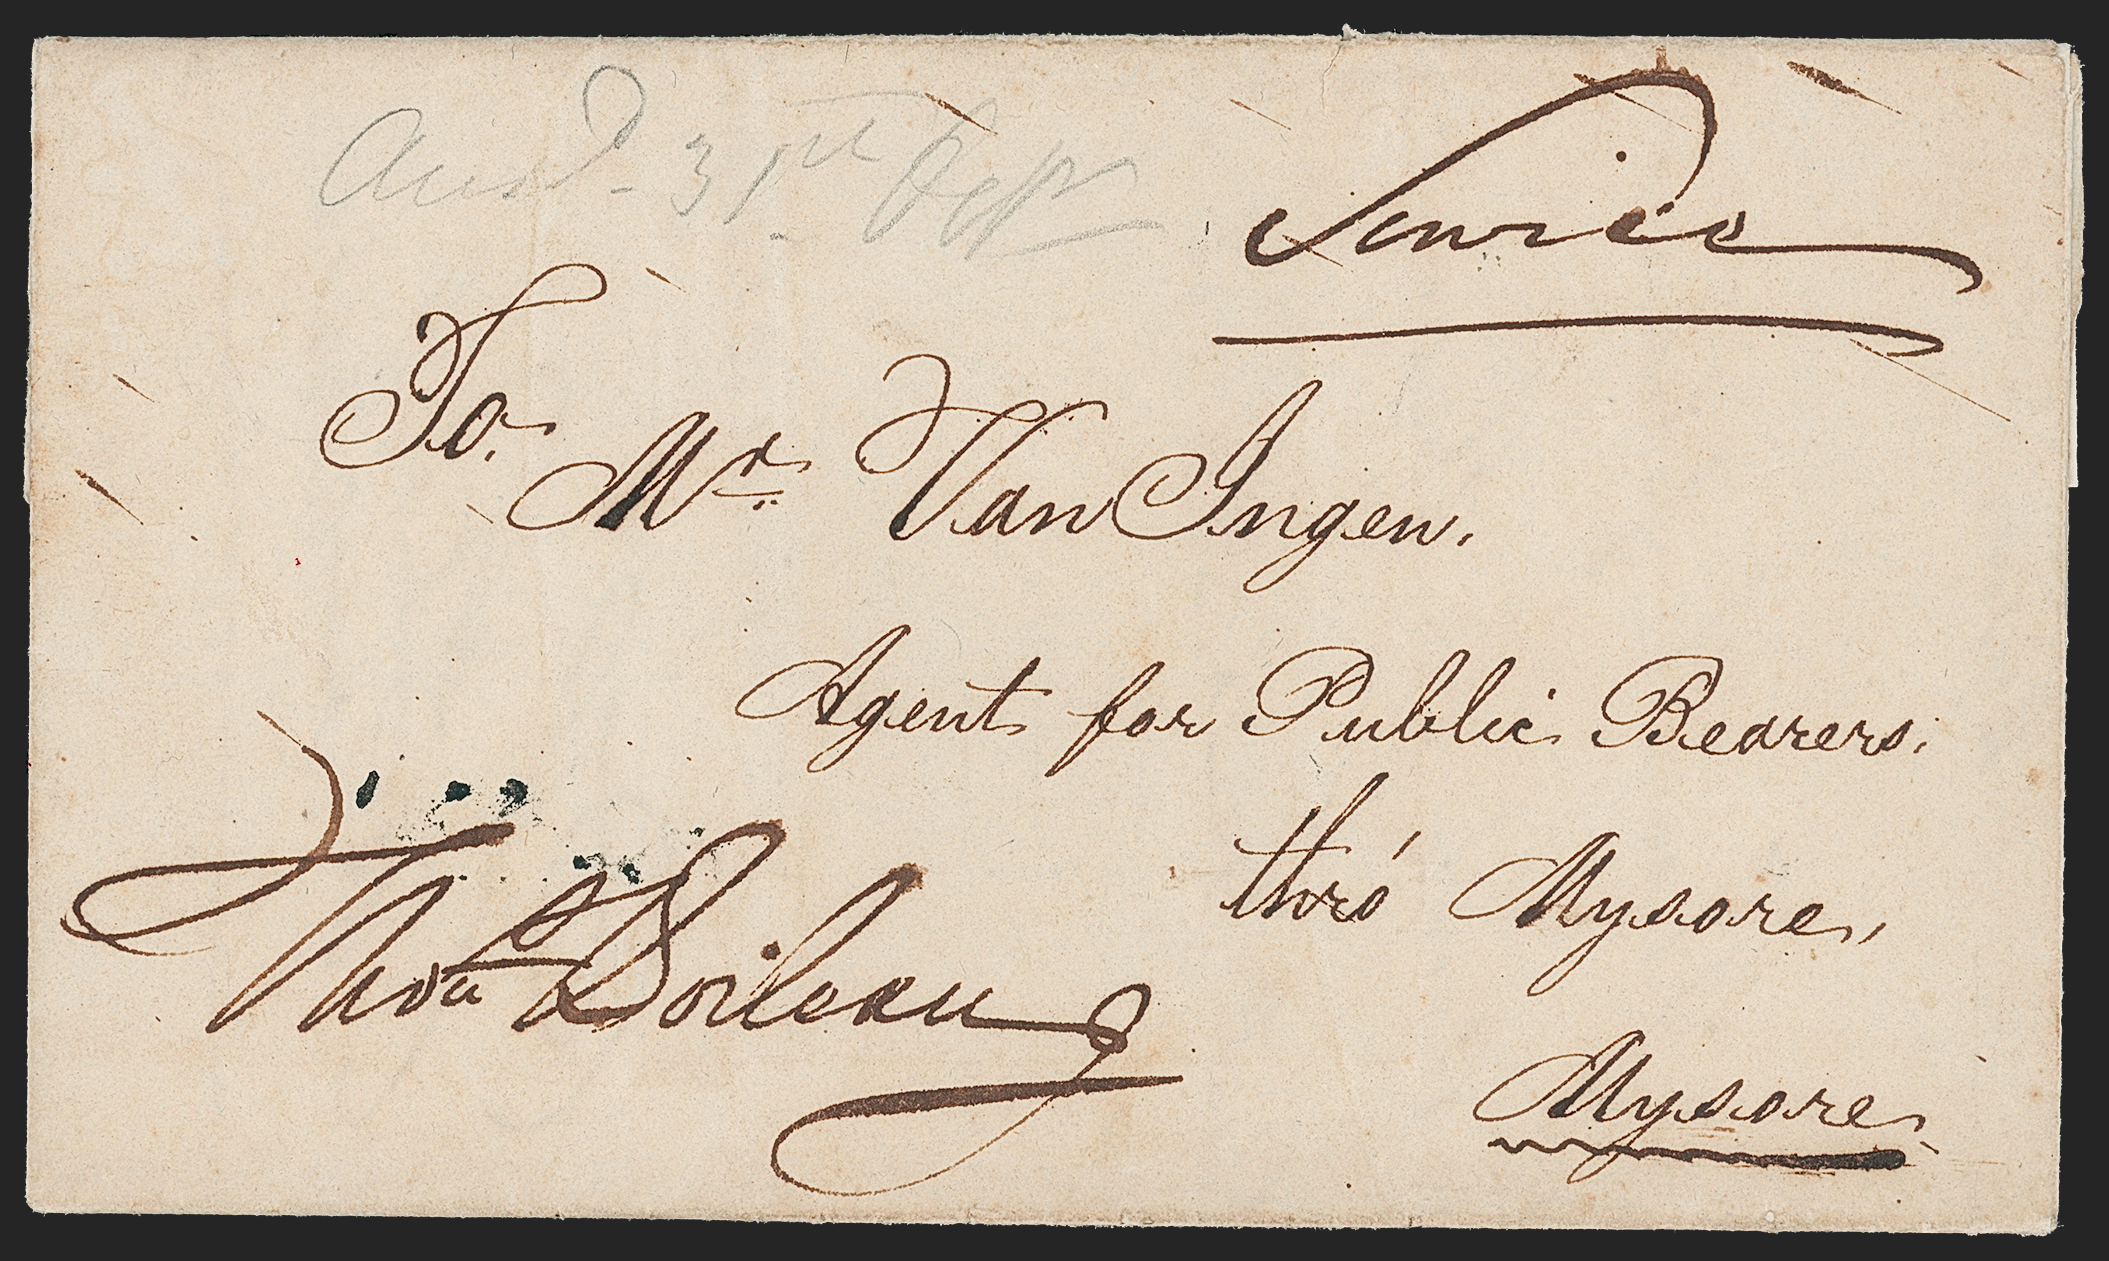 Ansd. 31st
Service
To.
Mr. Van Ingen.
Agent for Public Bearers.
thro' Mysore,
Thos. Boileau
Mysore